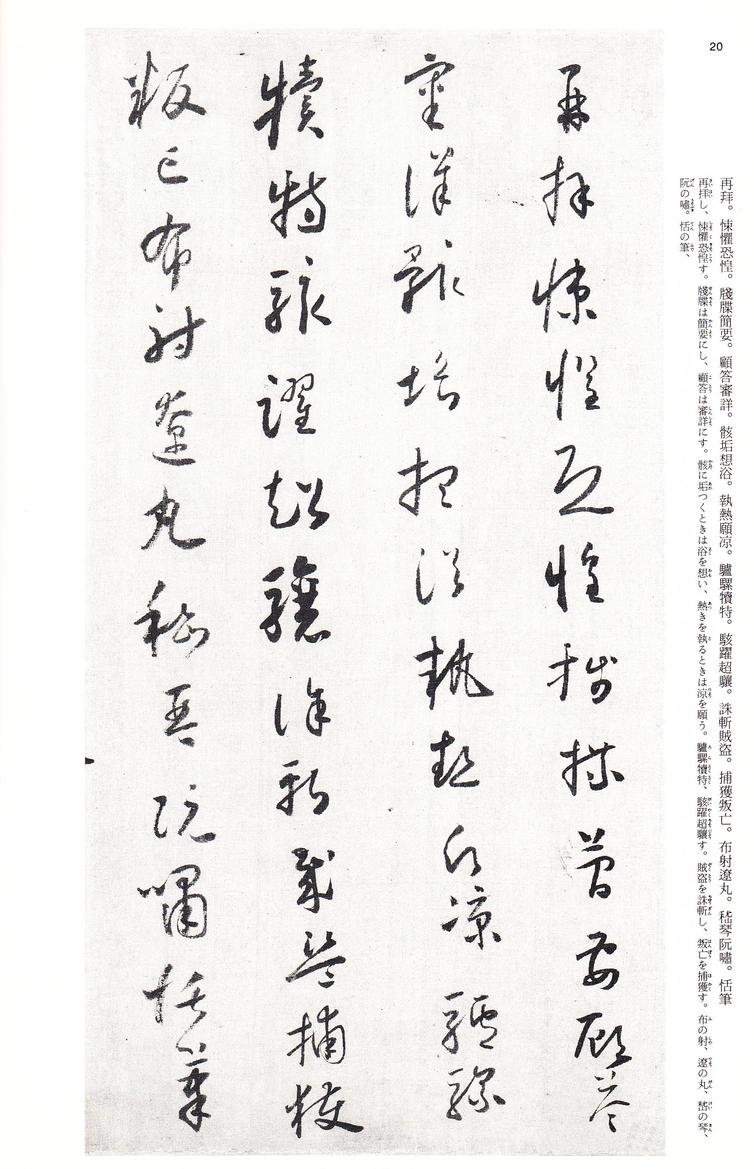 20
再拜。悚懼恐惶。牋牒簡要。顧答審詳。骸垢想浴。執熱願凉。驢騾犢特。駭躍超驤。誅斬賊盗。捕獲叛亡。布射遼丸。嵇琴阮嘯。恬筆
再拝し、悚懼恐惶す。牋牒は簡要にし、顧答は審詳にす。骸に垢つくときは浴を想い、熱きを執るときは涼を願う。驢騾犢特、駭躍超驤す。賊盗を誅斬し、叛亡を捕獲す。布の射、遼の丸、嵇の琴、
阮の嘯。恬の筆、
再拜悚懼恐惶牋牒簡要顧答
審詳骸垢想浴執熱願凉驢騾
犢特駭躍超驤誅斬賊盗捕獲
叛亡布射遼丸嵇琴阮嘯恬筆